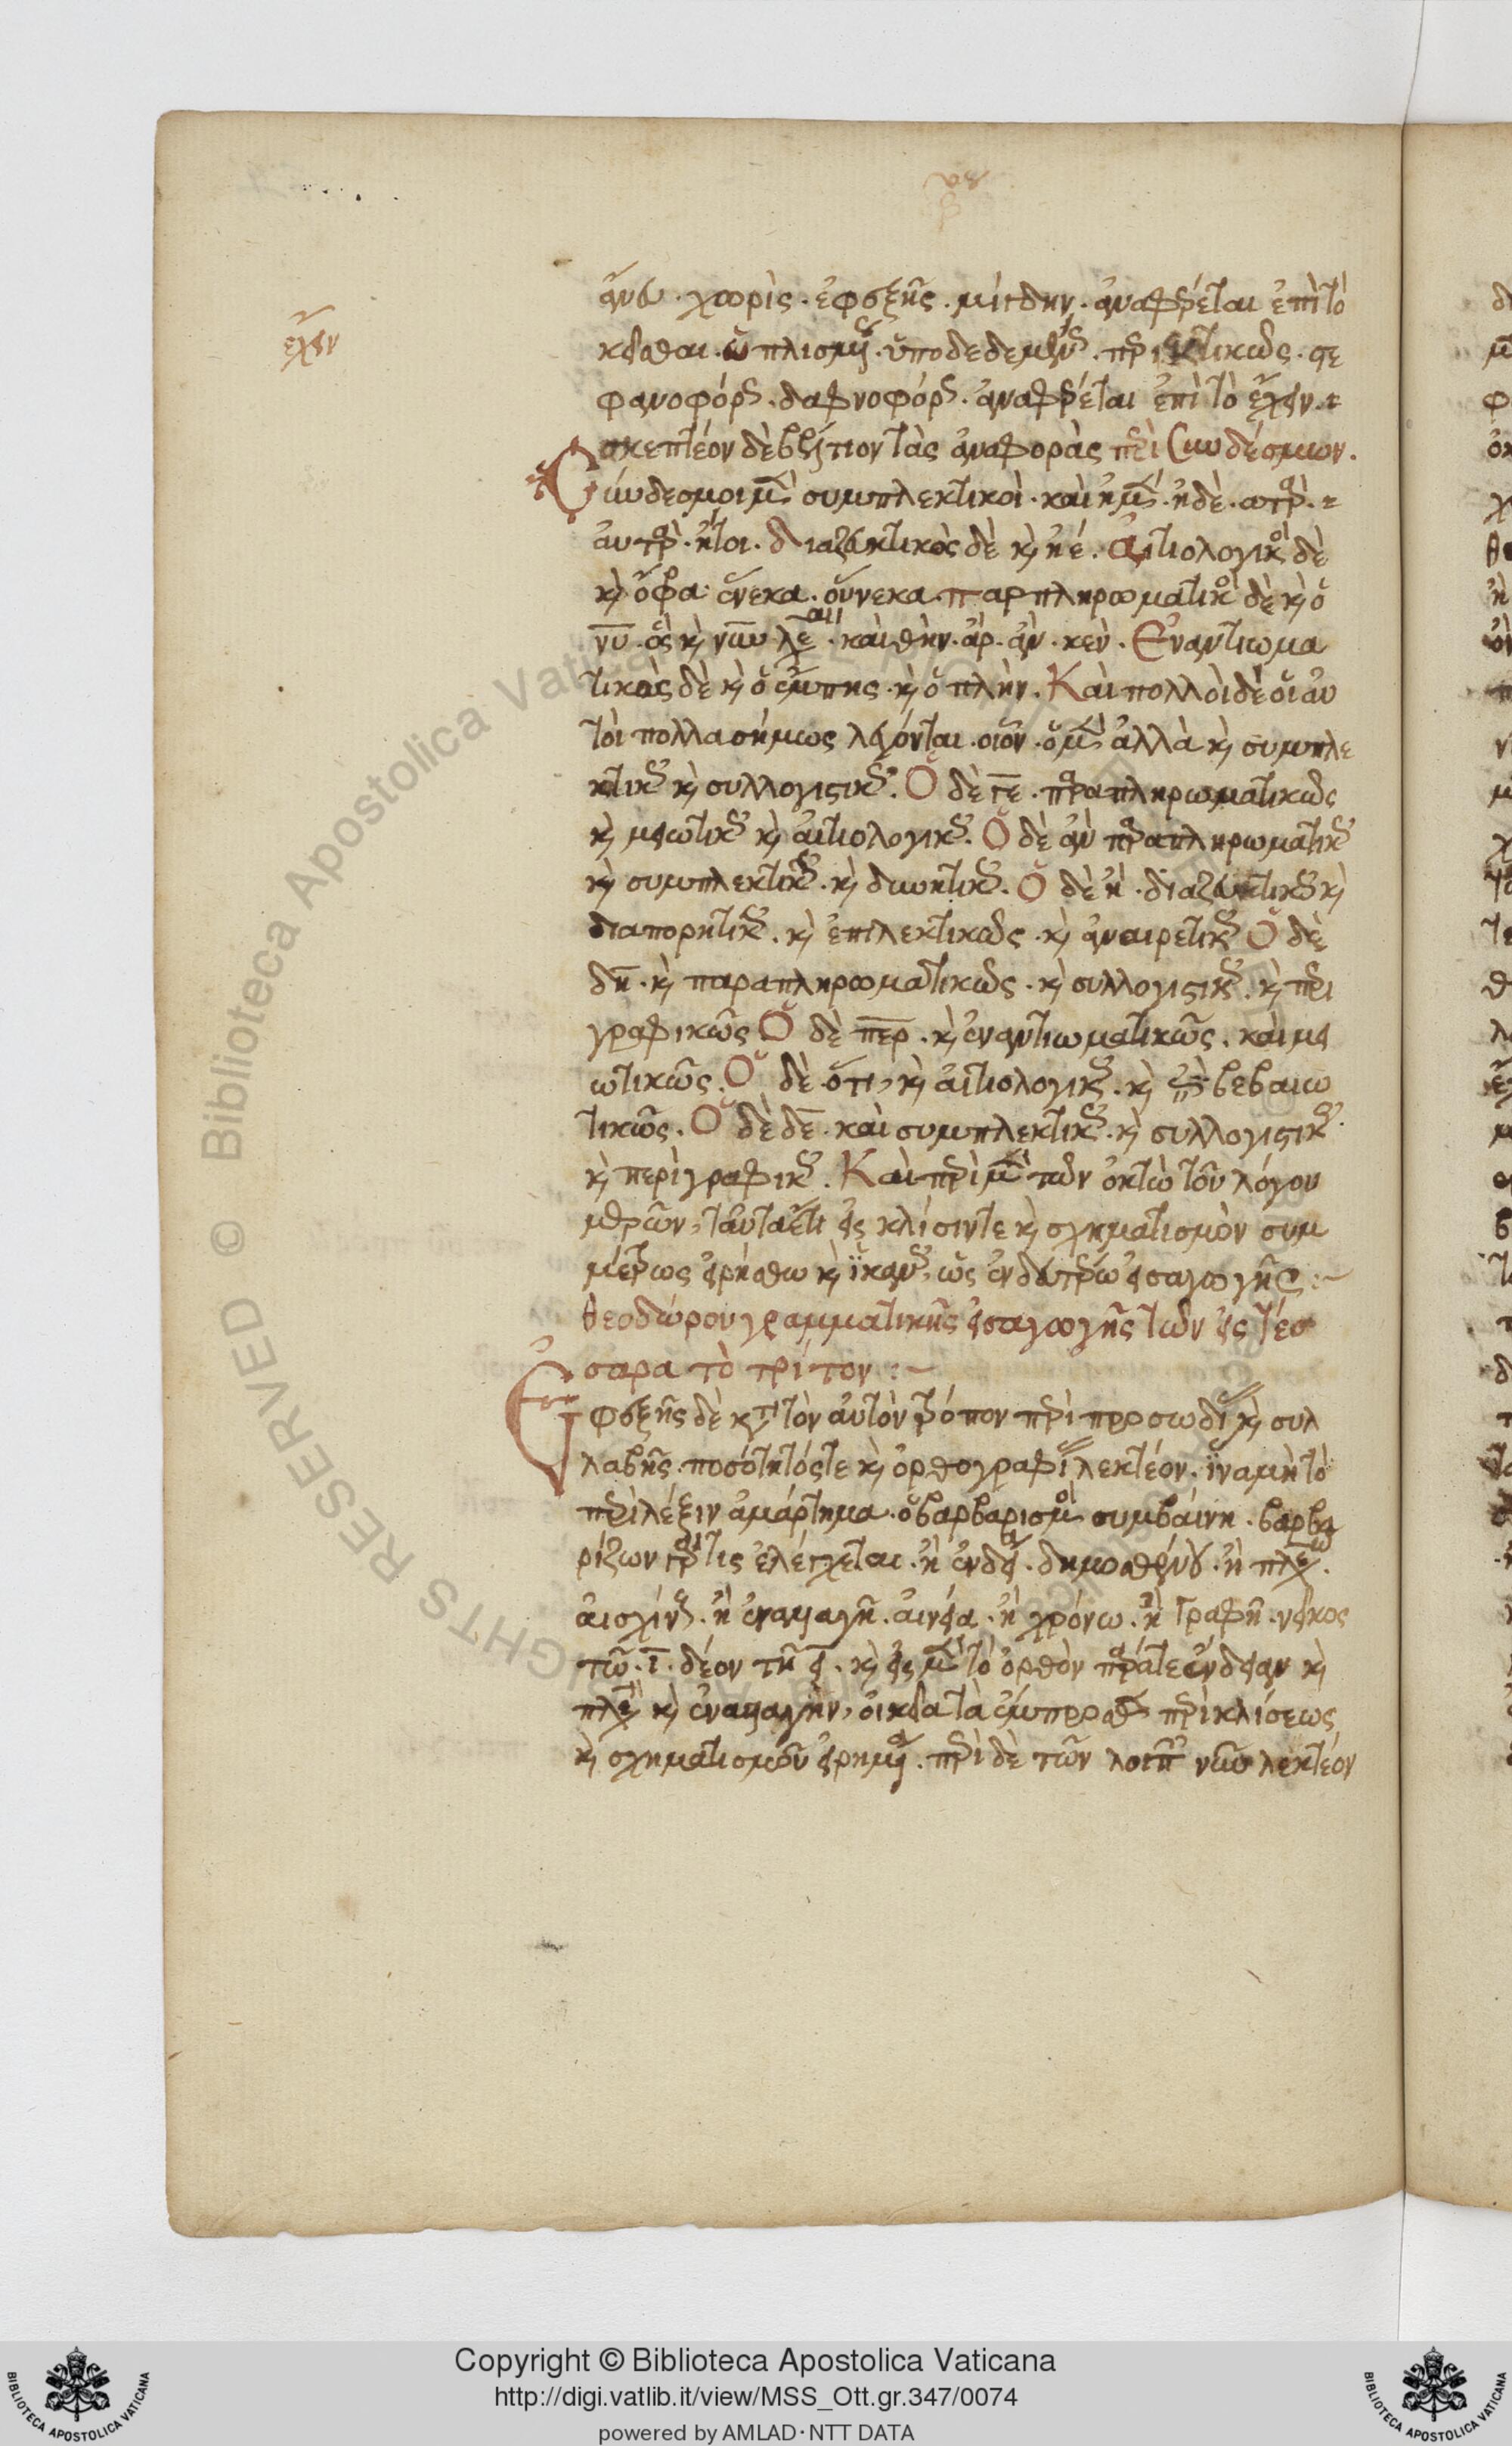 ἄνευ. χωρὶς. ἐφεξῆς. μίγδην. ἀναφέρεται ἐπὶ τὸ
κεῖσθαι. ὡπλισμένος. ὑποδεδεμένος. στε
φανοφόρος. δαφνοφόρος. ἀναφέρεται ἐπὶ τὸ ἔχειν.
ἔχειν
σκεπτέον δὲ βέλτιον τὰς ἀναφορὰς περὶ Συνδέσμων.
Σύνδεσμοι μὲν συμπλεκτικοὶ. καὶ ἠμὲν. ἠδὲ. ἀτὰρ.
αὐτὰρ. ἤτοι. Διαζευκτικὸς δὲ καὶ ἠέ. Αἰτιολογικοὶ δὲ
καὶ ὄφρα. ἕνεκα. οὕνεκα. παραπληρωματικοὶ δὲ καὶ ὁ
νυ. καὶ νῦν καὶ θὴν. ἄρ. ἂν. κεν. Ἐναντιωμα
τικὸς δὲ καὶ ὁ ἔμπης. καὶ ὁ πλήν. Καὶ πολλοὶ δὲ οἱ αὐ
τοὶ πολλασήμως λέγονται. οἷον. ὁ μὲν ἀλλὰ καὶ συμπλε
κτικῶς καὶ συλλογιστικῶς. Ὁ δὲ γε. παραπληρωματικῶς
καὶ μειωτικῶς καὶ αἰτιολογικῶς. Ὁ δὲ ἂν παραπληρωματικῶς
καὶ συμπλεκτικῶς. καὶ δυνητικῶς. Ὁ δὲ ἢ. διαζευκτικῶς καὶ
διαπορητικῶς. καὶ ἐπιλεκτικῶς. καὶ ἀναιρετικῶς Ὁ δὲ
δη. καὶ παραπληρωματικῶς. καὶ συλλογιστικῶς. καὶ περι
γραφικῶς Ὁ δὲ περ. καὶ ἐναντιωματικῶς. καὶ μει
ωτικῶς. Ὁ δὲ ὅτι, καὶ αἰτιολογικῶς. καὶ βεβαιω
τικῶς. Ὁ δὲ δε. καὶ συμπλεκτικῶς. καὶ συλλογιστικῶς.
καὶ περιγραφικῶς. Καὶ περὶ μὲν τῶν ὀκτὼ τοῦ λόγου
μερῶν, ταῦτα ἔτι εἰς κλίσιν τε καὶ σχηματισμὸν συμ
μέτρως εἰρήσθω καὶ ἱκανῶς, ὡς ἐν δευτέρῳ εἰσαγωγῆς :~
Θεοδώρου γραμματικῆς εἰσαγωγῆς τῶν εἰς τέσ
σαρα τὸ τρίτον :~
Ἐφεξῆς δὲ κατὰ τὸν αὐτὸν τρόπον περὶ προσωδίας καὶ συλ
λαβῆς. ποσότητός τε καὶ ὀρθογραφίας λεκτέον. ἵνα μὴ τὸ
περὶ λέξιν ἁμάρτημα. ὁ βαρβαρισμὸς συμβαίνῃ. βαρβα
ρίζων γάρ τις ἐλέγχεται. ἢ ἐνδείᾳ. δημοσθένου. ἢ
αἰσχίνης. ἢ ἐναλλαγῇ. αἰνεία. ἢ χρόνω. ἢ Γραφῇ. νεῖκος
τῶ. ι. δέον τῇ ει. καὶ εἰς μὲν τὸ ὀρθὸν ἔνδειαν καὶ
καὶ ἐναλλαγὴν, οἰκεῖα τὰ ἔμπροσθεν περὶ κλίσεως
καὶ σχηματισμοῦ εἰρημένα. περὶ δὲ τῶν λοιπῶν νῦν λεκτέον
Copyright © Biblioteca Apostolica Vaticana
http://digi.vatlib.it/view/MSS_Ott.gr.347/0074
powered by AMLAD·NTT DATA